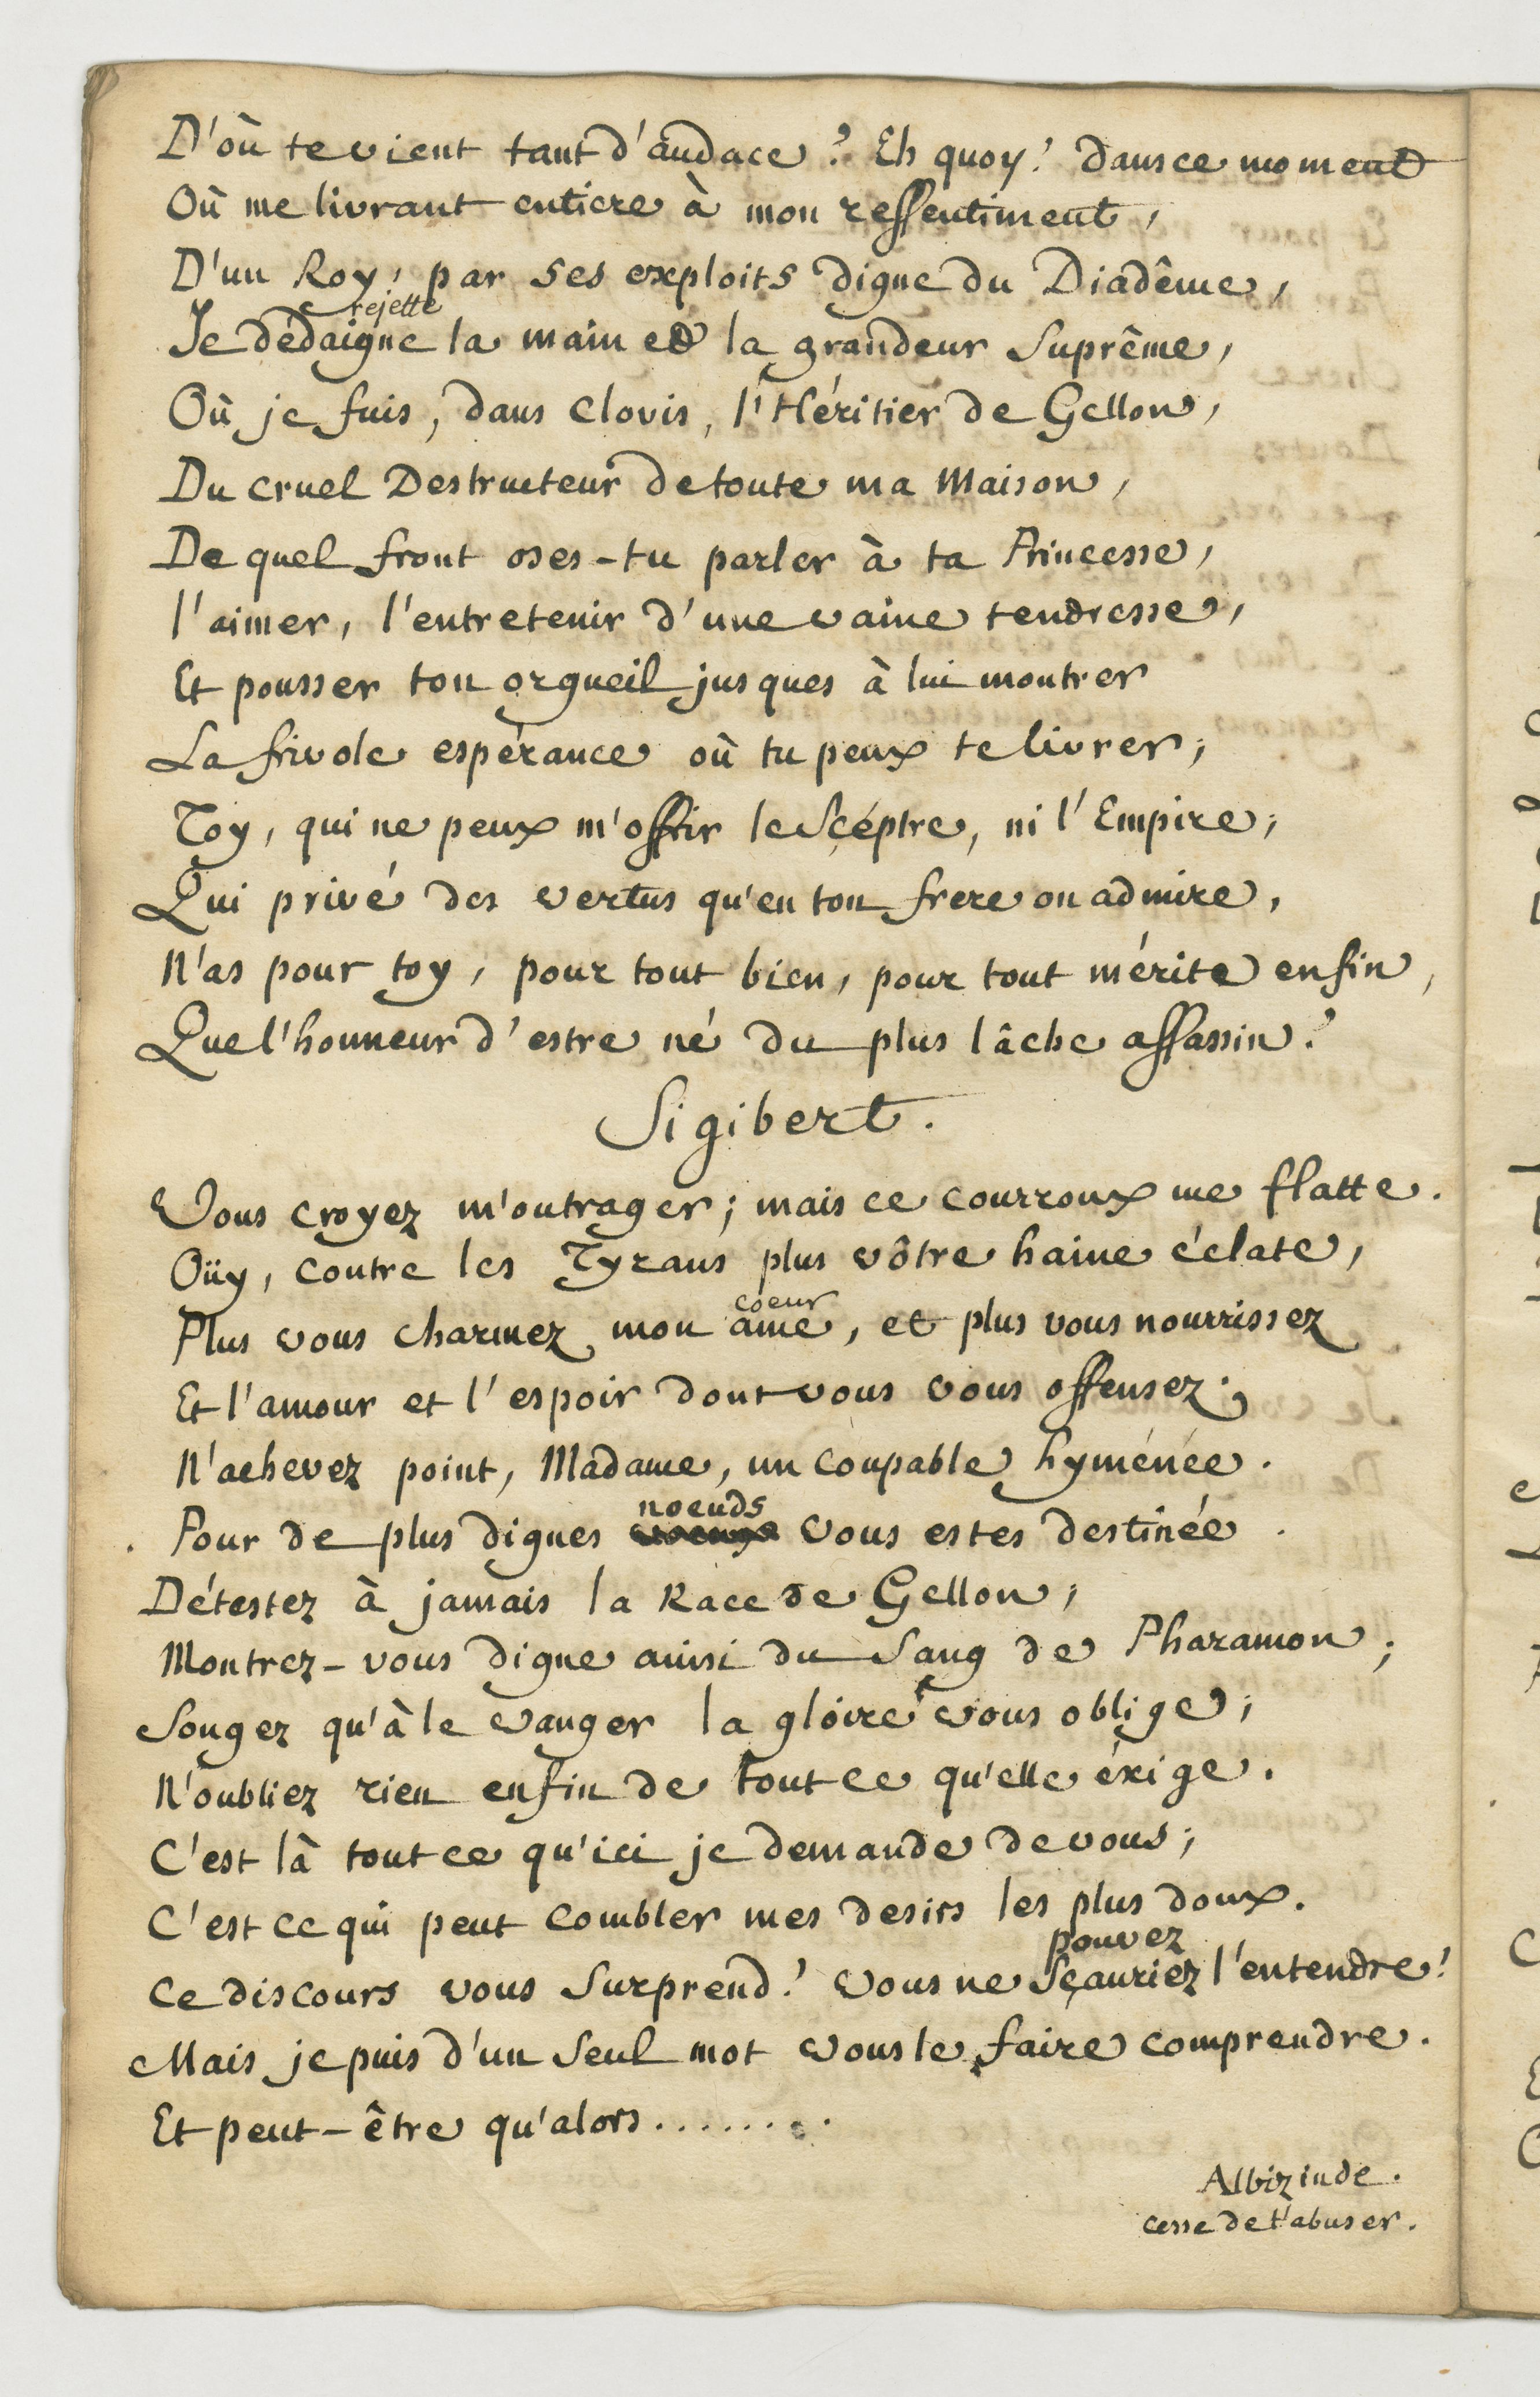 D'où te vient tant d'audace? Eh quoy! dans ce moment
Où me livrant entiere à mon ressentiment,
D'un Roy, par ses exploits digne du Diadême,
rejette
Je dédaigne la main et la grandeur Suprême,
Où je fuis, dans Clovis, l'Héritier de Gellon,
Du cruel Destructeur de toute ma Maison,
De quel front oses-tu parler à ta Princesse,
l'aimer, l'entretenir d'une vaine tendresse,
Et pousser ton orgueil jusques à lui montrer
La frivole espérance où tu peux te livrer;
Toy, qui ne peux m'offrir le Sçéptre, ni l'Empire;
Qui privé des vertus qu'en ton frere on admire,
N'as pour toy, pour tout bien, pour tout mérite enfin,
Que l'honneur d'estre né du plus lâche assassin?
Sigibert.
Vous croyez m'outrager; mais ce courroux me flatte.
Oüy, contre les Tyrans plus vôtre haine éclate,
coeur
Plus vous charmez mon ame, et plus vous nourrissez
Et l'amour et l'espoir dont vous vous offensez.
N'achevez point, Madame, un coupable hyménée.
noeuds
Pour de plus dignes voeux vous estes destinée.
Détestez à jamais la Race de Gellon;
Montrez-vous digne ainsi du Sang de Pharamon;
Songez qu'à le vanger la gloire vous oblige;
N'oubliez rien enfin de tout ce qu'elle éxige.
C'est là tout ce qu'ici je demande de vous;
C'est ce qui peut combler mes desirs les plus doux.
pouvez
Ce discours vous Surprend! vous ne Sçauriez l'entendre!
Mais je puis d'un Seul mot vous le faire comprendre.
Et peut-être qu'alors........
Albizinde.
cesse de t'abuser.